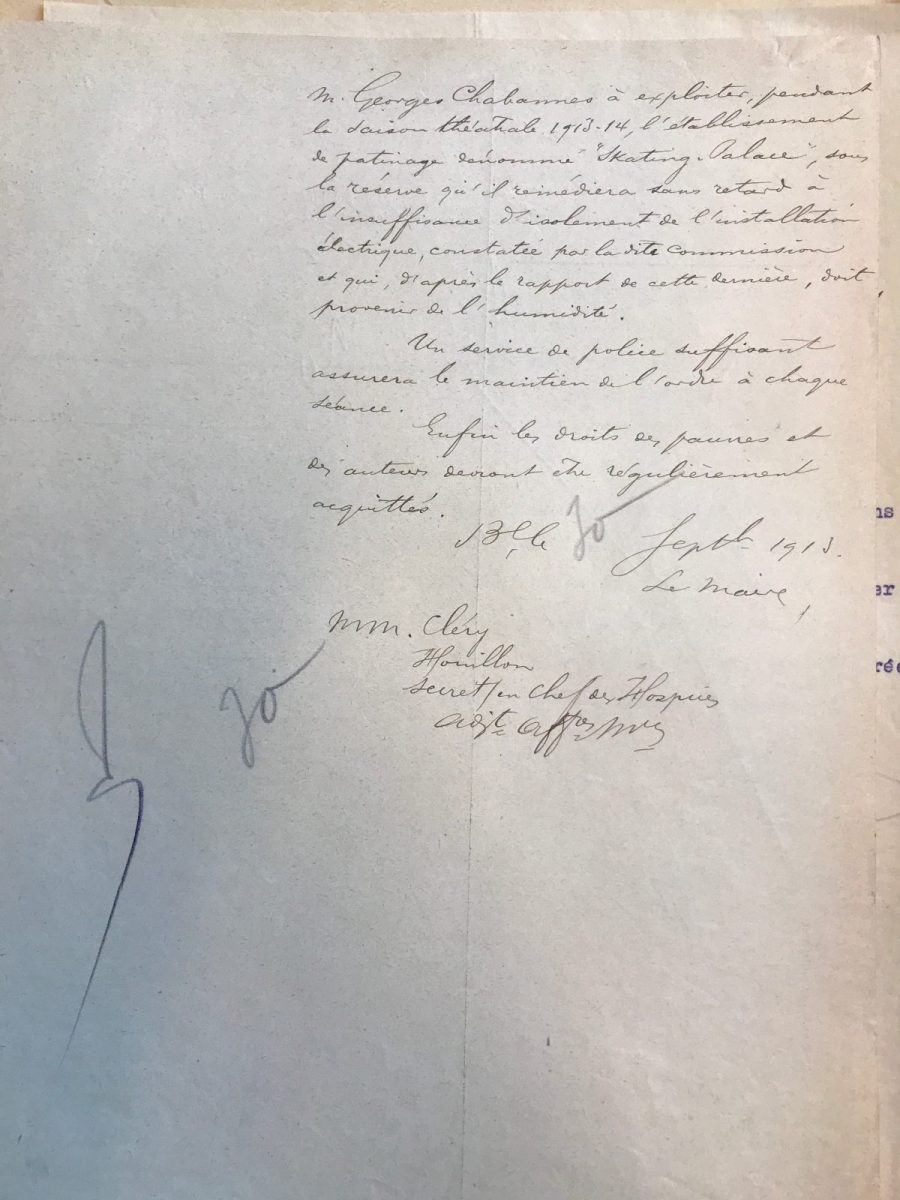 M. Georges Chabannes à exploiter, pendant
la saison théâtrale 1913-14, l'établissement
de patinage dénommé "Skating-Palace", sous
la réserve qu'il remédiera sans retard à
l'insuffisance d'isolement de l'installation
électrique, constatée par la dite Commission
et qui, d'après le rapport de cette dernière, doit
provenir de l'humidité.
Un service de police suffisant
assurera le maintien de l'ordre à chaque
séance.
Enfin les droits des pauvres et
des auteurs devront être régulièrement
acquittés.
30 Septb 1913.
Le Maire,
MM. Cléry
Houillon
Secret/en chef des Hospices
30
Adjt
ns
er
rée